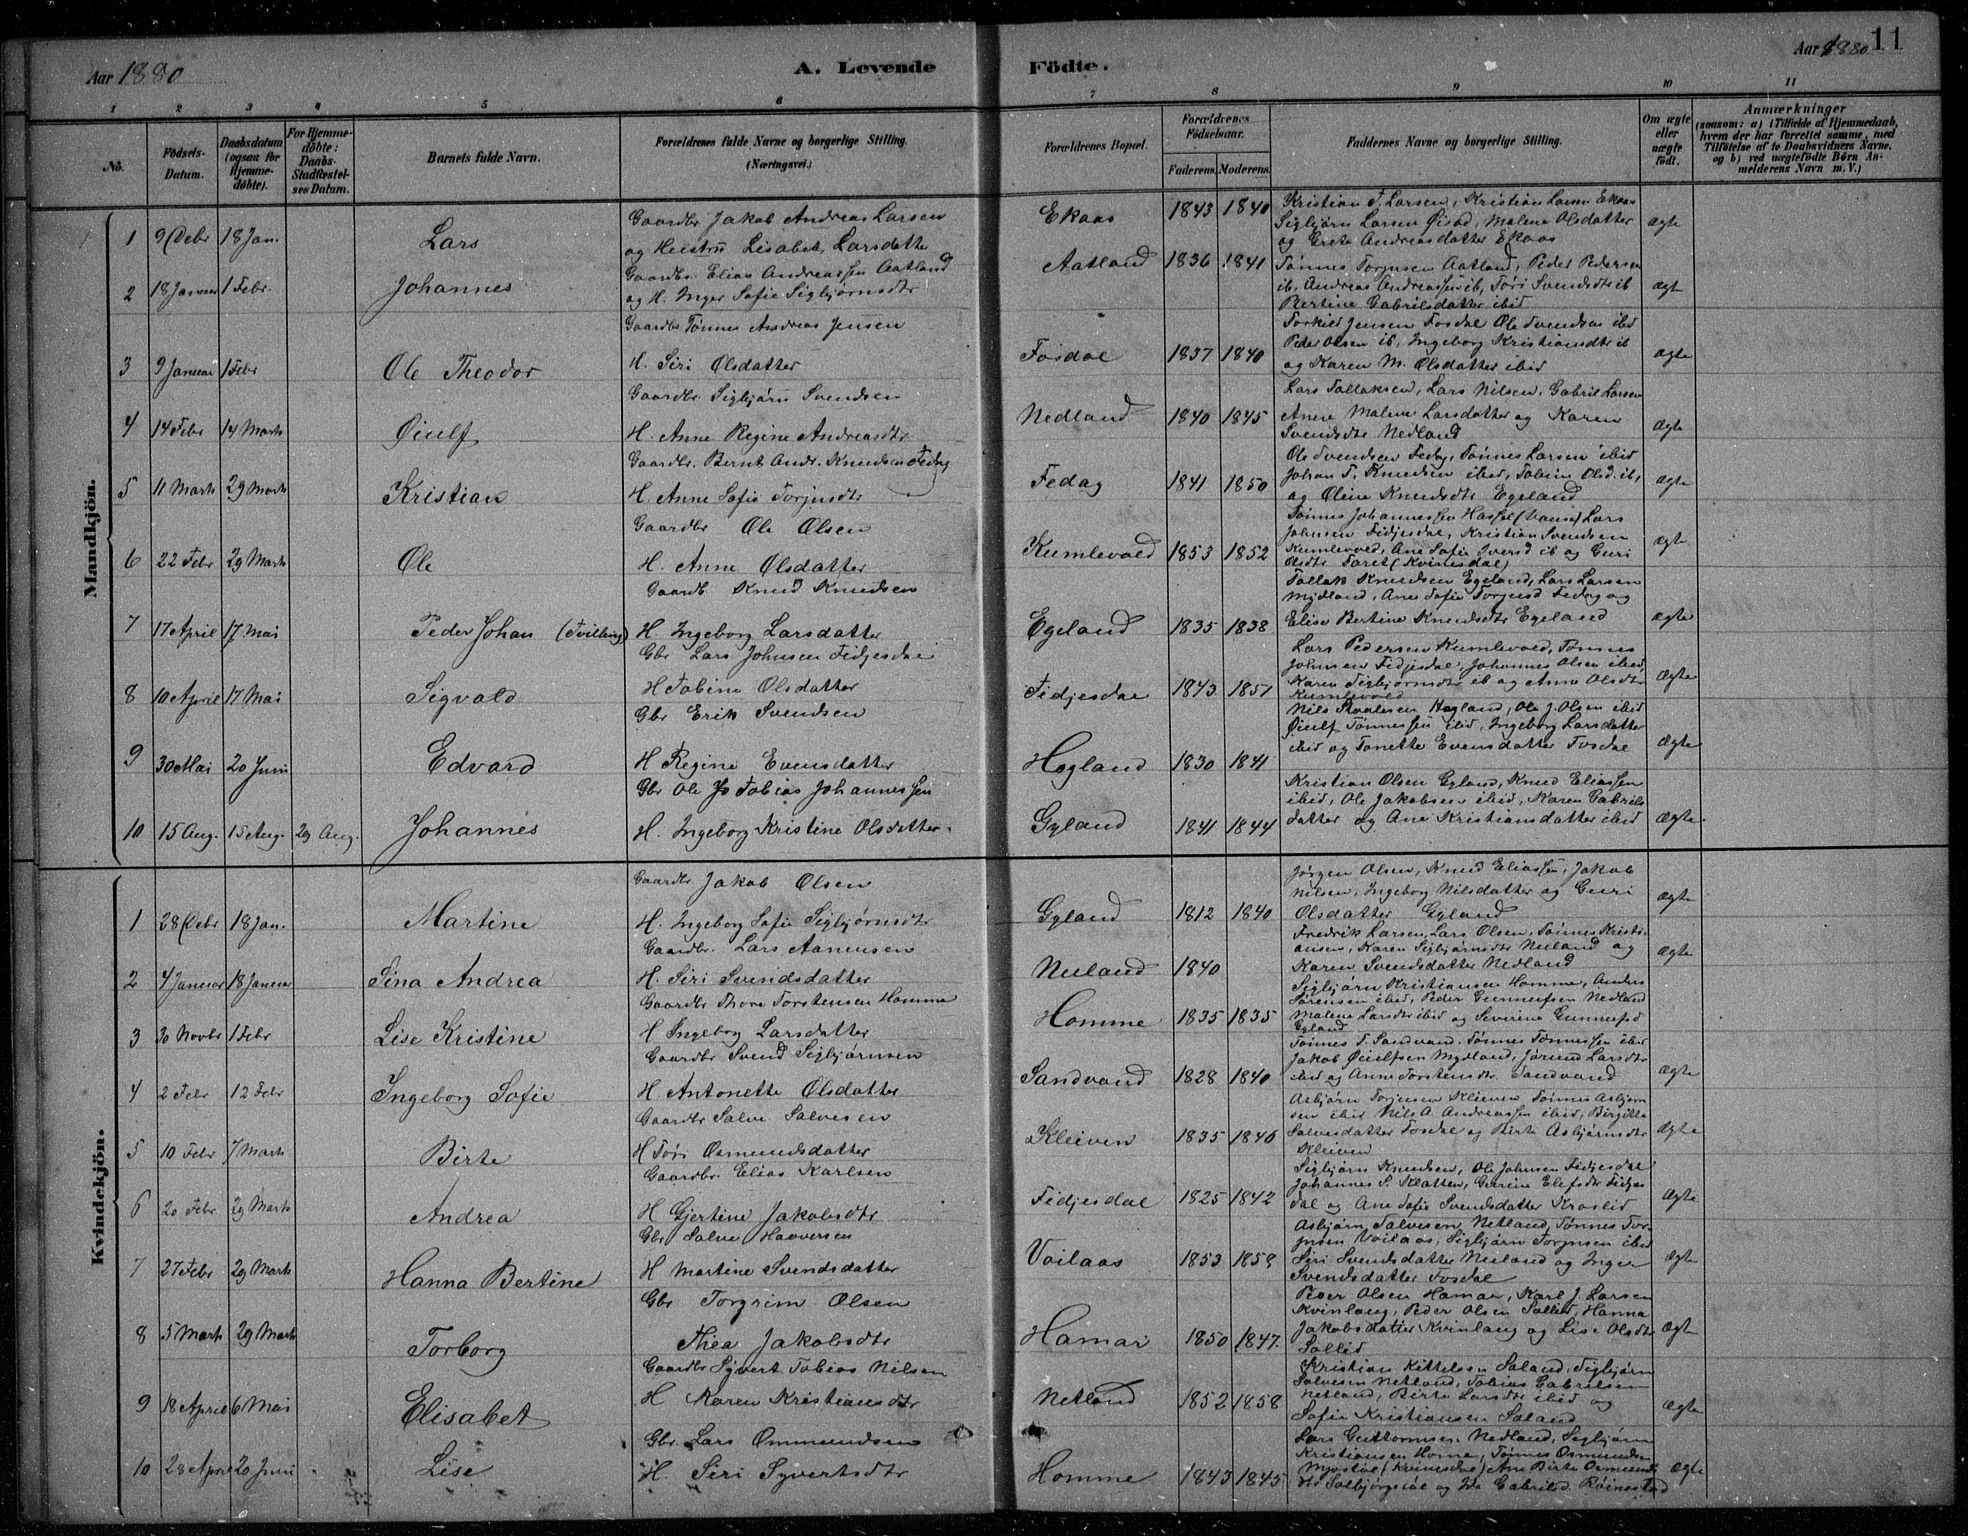 Aar 1880
A. Levende
Födte.
Aar 1880
11
1 2 3 4 5 6 7 8 9 10 11
No.
Födsels-Datum.
Daabsdatum (ogsaa for Hjemme-døbte).
For Hjemme-døbte: Daabs-Stadfæstel-ses Datum.
Barnets fulde Navn.
Forældrenes fulde Navne og borgerlige Stilling. (Næringsvei.)
Forældrenes Bopæl.
Forældrenes Födselsaar.
Faderens. Moderens.
Faddernes Navne og borgerlige Stilling.
Om ægte eller uægte födt.
Anmærkninger
(saasom: a) i Tilfælde af Hjemmedaab, hvem der har forrettet samme, med Tilföielse af to Daabsvidners Navne, og b) ved uægtefödte Börn An-melderens Navn m. V.)
Mandkjön.
1 9 Debr 18 Jan. Lars
Gaardbr Jakob Andreas Larsen
og Hustru Lisabet Larsdatte
Ekaas 1843 1840
Kristian T. Larsen, Kristian Ekaas
Sigbjørn Larsen Malene Olsdatter
og Grete Andreasdatter Ekaas
ægte
2 18 Januar 1 Febr. Johannes
Gaardbr. Elias Andreassen Aatland
og H. Inger Sofie Sigbjørnsdtr
Aatland 1836 1841
Tønnes Torjusen Aatland, Peder Pedersen
ib, Andreas Andreassen ib, Tøri Svendsdtr ib
Bertine Gabrilsdatter ibid
ægt
3 9 Januar 1 Febr Ole Theodor
Gaardbr Tønnes Andreas Jensen
H. Siri Olsdatter
Fosdal 1837 1840
Torkild Jensen Fosdal Ole Svendsen ibid
Peder Olsen ib, Ingeborg Kristiansdtr ib
og Karen M. Olsdatter ibid
ægte
4 14 Febr 14 Marts Øiulf
Gaardbr. Sigbjørn Svendsen
H. Anne Regine Andreasdtr
Nedland 1840 1845
Lars Tallaksen, Lars Nilsen, Gabriel Larsen
Anne Malene Larsdatter og Karen
Svendsdtr Nedland
ægte
5 11 Marts 29 Marts Kristian
Gaardbr. Bernt Andr. Knudsen Fedag
H. Anne Sofie Torjusdtr
Fedag 1841 1850
Ole Svendsen Fedag, Tønnes Larsen ibid
Johan T. Knudsen ibid, Tobine Olsd. ib,
og Oline Knudsdtr Egeland
ægte
6 22 Febr 29 Marts Ole
Gaardbr Ole Olsen
H. Anne Olsdatter
Kumlevold 1853 1852
Tønnes Johannessen Lars
Johnsen Fidjesdal, Kristian Svendsen
Kumlevold, Ane Sofie Iversd ib og Guri
Olsdtr (Kvinesdal)
ægt
7 17 April 17 Mai Peder Johan (Tvilling)
Gaardb. Knud Knudsen
H Ingeborg Larsdatter
Egeland 1835 1838
Tallak Knudsen Egeland, Lars Larsen
Mydland, Ane Sofie Torjusd Fedag og
Elise Bertine Knudsdtr Egeland
ægte
8 10 April 17 Mai Sigvald
Gbr Lars Johnsen Fidjesdal
H Tobine Olsdatter
Fidjesdal 1843 1851
Lars Pedersen Kumlevold, Tønnes
Johnsen Fidjesdal, Johannes Olsen ibid
Karen Sigbjørnsdtr ib og Anne Olsdtr
Kumlevold
ægte
9 30 Mai 20 Juni Edvard
Gbr Erik Svendsen
H Regine Evensdatter
Høgland 1830 1841
Nils Høgland, Ole J. Olsen ibid
Øiulf Tønnessen ibid, Ingeborg Larsdatter
ibid og Tonette Evensdatter Fosdal
ægte
10 15 Aug. 15 Aug. 29 Aug. Johannes
Gbr Ole Tobias Johannessen
H. Ingeborg Kristine Olsdatter
Gyland 1841 1844
Kristian Olsen Gyland, Knud Eliassen
ibid, Ole Jakobsen ibid, Karen Gabriels
datter og Ane Kristiansdatter ibid
ægte
Kvindekjön.
1 28 Debr 18 Jan. Martine
Gaardbr Jakob Olsen
H. Ingeborg Sofie Sigbjørnsdtr
Gyland 1812 1840
Jørgen Olsen, Knud Eliassen, Jakob
Nilsen, Ingeborg Nilsdatter og Guri
Olsdatter Gyland
ægte
2 4 Januar 18 Januar Sina Andrea
Gaardbr. Lars Aanensen
H. Siri Svendsdatter
Neiland 1840
Fredrik Larsen, Lars Olsen, Tønnes Kristi-
ansen, Karen Sigbjørnsdtr Neiland og
Karen Svendsdatter Nedland
ægte
3 30 Novbr 1 Febr Lise Kristine
Gaardbr Thore Torstensen Homme
H Ingeborg Larsdatter
Homme 1835 1835
Sigbjørn Kristiansen Homme, Anders
Sørensen ibid, Peder Gunnufsen Nedland
Malene Larsdtr ibid og Severine Gunnufsd
Gyland
4 2 Febr 12 Febr Ingeborg Sofie
Gaardbr Svend Sigbjørnsen
H. Antonette Olsdatter
Sandvand 1828 1840
Tønnes T. Sandvand, Tønnes Tønnessen ibid
Jakob Øiulfsen Mydland, Jørund Larsdtr
ibid og Anne Torstensdtr. Sandvand
ægte
5 10 Febr 7 Marts Birte
Gaardbr Salve Salvesen
H Tøri Osmundsdatter
Kleiven 1835 1846
Asbjørn Torjusen Kleiven Tønnes Asbjørn
sen ibid Nils A. Andreassen ibid, Birgitte
Salvesdatter Fosdal og Birte Asbjørnsdtr
Kleiven
ægte
6 20 Febr. 29 Marts Andrea
Gaardbr. Elias Karlsen
H Gjertine Jakobsdtr
Fidjesdal 1825 1842
Sigbjørn Knudsen, Ole Johnsen Fidjesdal
Johannes S. Klatten, Elefsdtr Fidjes
dal og Ane Sofie Svendsdatter
ægte
7 27 Febr 29 Marts Hanna Bertine
Gbr Salve Haaversen
H Martine Svendsdatter
Voilaas 1853 1858
Asbjørn Salvesen Netland, Tønnes Tor-
jusen Voilaas, Sigbjørn Torjusen ibid
Siri Svendsdatter Neiland og Inger
Svendsdatter Fosdal
ægte
8 5 Marts 29 Marts Torborg
Gbr Torgrim Olsen
Thea Jakobsdtr
Hamar 1850 1847.
Peder Olsen Hamar, Karl J. Larsen
Kvinlaug, Peder Olsen Sollid, Hanna
Jakobsdatter Kvinlaug og Lise Olsdtr
Sollid
ægte
9 18 April 6 Mai Elisabet
Gaardbr Syvert Tobias Nilsen
H Karen Kristiansdtr
Netland 1852 1858
Kristian Kittelsen Saland, Sigbjørn
Salvesen Netland, Tobias Gabrielsen
Netland, Birte Larsdtr ibid og
Sofie Kristiansen Saland
ægte
10 28 April 20 Juni Lise
Gbr. Lars Ommundsen
H. Siri Syvertsdtr
Homme 1843 1845
Lars Guttormsen Nedland, Sigbjørn
Kristiansen Home, Tønnes Osmundsen
(Kvinesdal) Ane Birte Osmunds
og Ida Gabrielsd. Røinestad
ægte